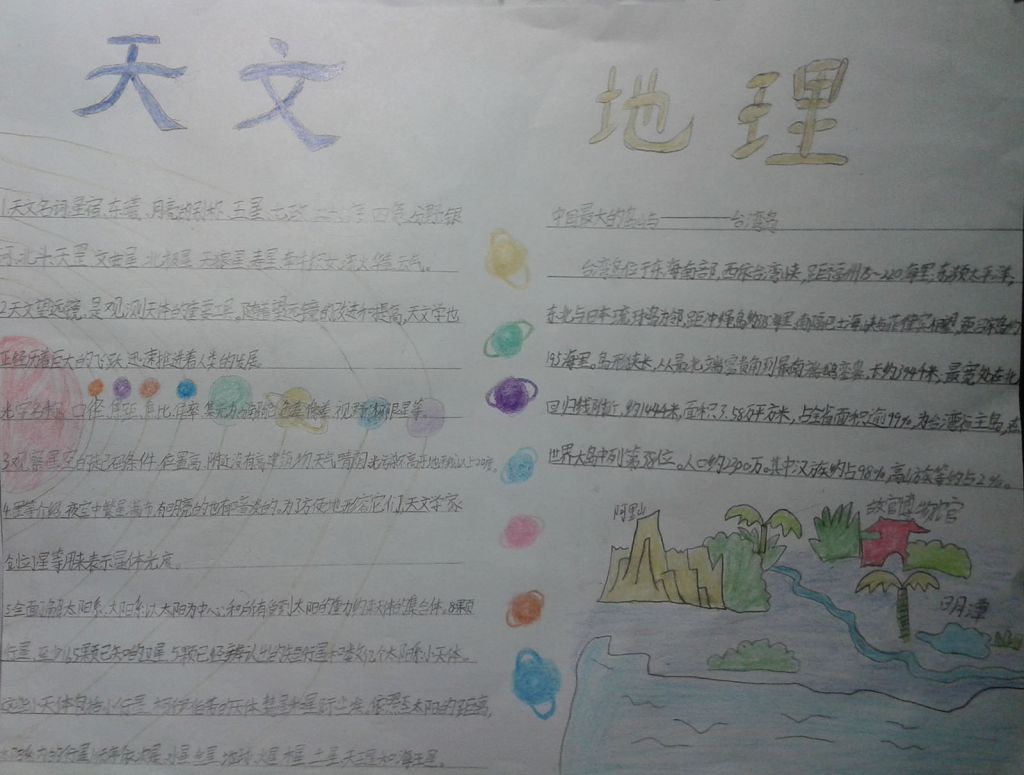 天文
地理
1天文名词:星宿、东曦、月亮的别称、五星、七政、二十八宿、四象、分野、银
河、北斗、天罡、文曲星、北极星、天狼星、彗星、牵牛织女、流火、节气。
2天文望远镜,是观测天体的重要工具。随着望远镜的改进和提高,天文学也
正经历着巨大的飞跃,迅速推进着人类的发展
光学名称 口径、焦距、焦比、倍率、集光力、视野、极限星等
3观察星空 条件 位置高,附近没有高建筑物,天气晴朗
4星等介绍,夜空中繁星满布,有明亮的也有暗淡的。为了方便地形容它们,天文学家
创立了星等用来表示星体光度。
5全面了解太阳系,太阳系以太阳为中心和所有受到太阳的重力约束天体的集合体,8颗
行星,至少165颗已知的卫星,5颗已经辨认出的矮行星和数以亿个太阳系小天体。
这些小天体包括小行星、柯伊伯带的天体、彗星和星际尘埃,依照至太阳的距离,
太阳系内的行星依次是水星、金星、地球、火星、木星、土星、天王星和海王星。
中国最大的岛屿————台湾岛
台湾岛位于东海南部,西依台湾海峡,距福州3~220海里,东濒太平洋,
东北与日本琉球岛为邻,距冲绳岛约335海里,南隔巴士海峡与菲律宾相望,距
195海里。岛形狭长,从最北端富贵角到最南端鹅銮鼻,长约394千米,最宽处在北
回归线附近,约144千米,面积3.58万平方米,占全省面积逾99%,为台湾极主岛,在
世界大岛中列第38位。人口约2300万。其中汉族约占98%,高山族等约占2%。
阿里山
故宫博物院
日月潭